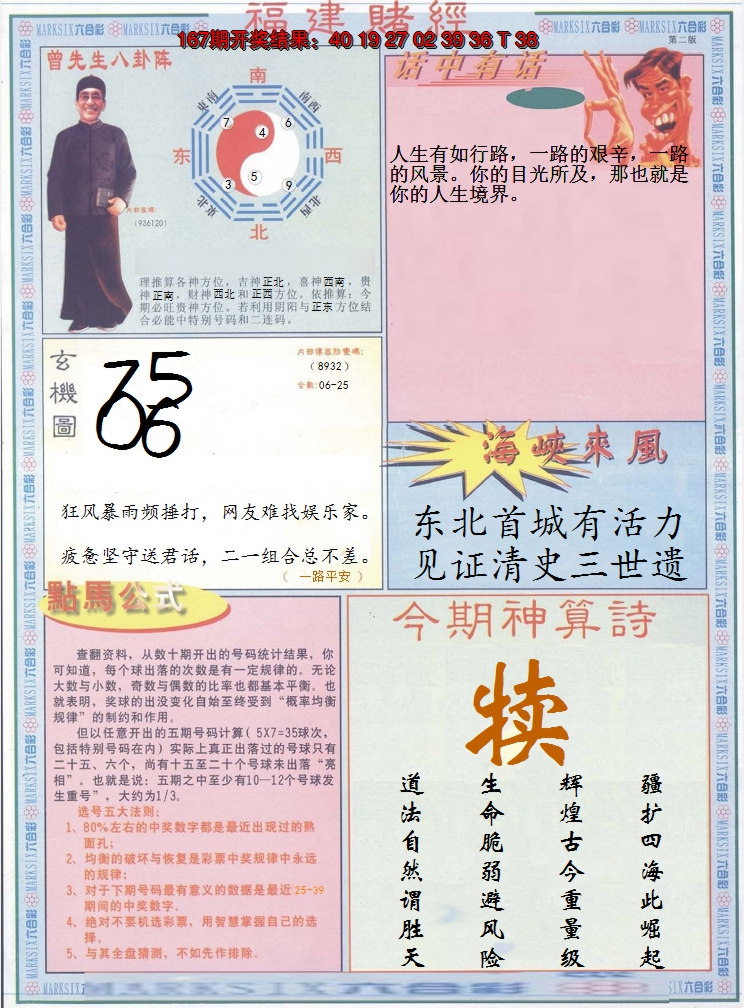 福建賭經
167期开奖结果：40 19 27 02 39 36 T 38
MARKSIX六合彩
第二版
曾先生八卦阵
南
东南
南西
7
4
6
东
西
3
5
9
東北
北西
北
内部密碼：
（936120）
理推算各神方位，吉神正北，喜神西南，贵
神正南，财神西北和正西方位。依推算：今
期必旺贵神方位。若利用阴阳与正东方位结
合必能中特别号码和二连码。
话中有话
人生有如行路，一路的艰辛，一路
的风景。你的目光所及，那也就是
你的人生境界。
玄機圖
35
06
（8932）
合数:06-25
狂风暴雨频捶打，网友难找娱乐家。
疲惫坚守送君话，二一组合总不差。
（ 一路平安 ）
海峽來風
东北首城有活力
见证清史三世遗
點馬公式
查翻资料，从数十期开出的号码统计结果，你
可知道，每个球出落的次数是有一定规律的。无论
大数与小数，奇数与偶数的比率也都基本平衡。也
就表明，奖球的出没变化自始至终受到“概率均衡
规律”的制约和作用。
但以任意开出的五期号码计算( 5X7=35球次，
包括特别号码在内)实际上真正出落过的号球只有
二十五、六个，尚有十五至二十个号球未出落“亮
相”。也就是说：五期之中至少有10—12个号球发
生重号”，大约为1/3。
选号五大法则：
1、80%左右的中奖数字都是最近出现过的熟
面孔；
2、均衡的破坏与恢复是彩票中奖规律中永远
的规律；
3、对于下期号码最有意义的数据是最近25-39
期间的中奖数字。
4、绝对不要机选彩票，用智慧掌握自己的选
择。
5、与其全盘猜测，不如先作排除。
今期神算詩
犊
道法自然谓胜天
生命脆弱避风险
辉煌古今重量级
疆扩四海此崛起